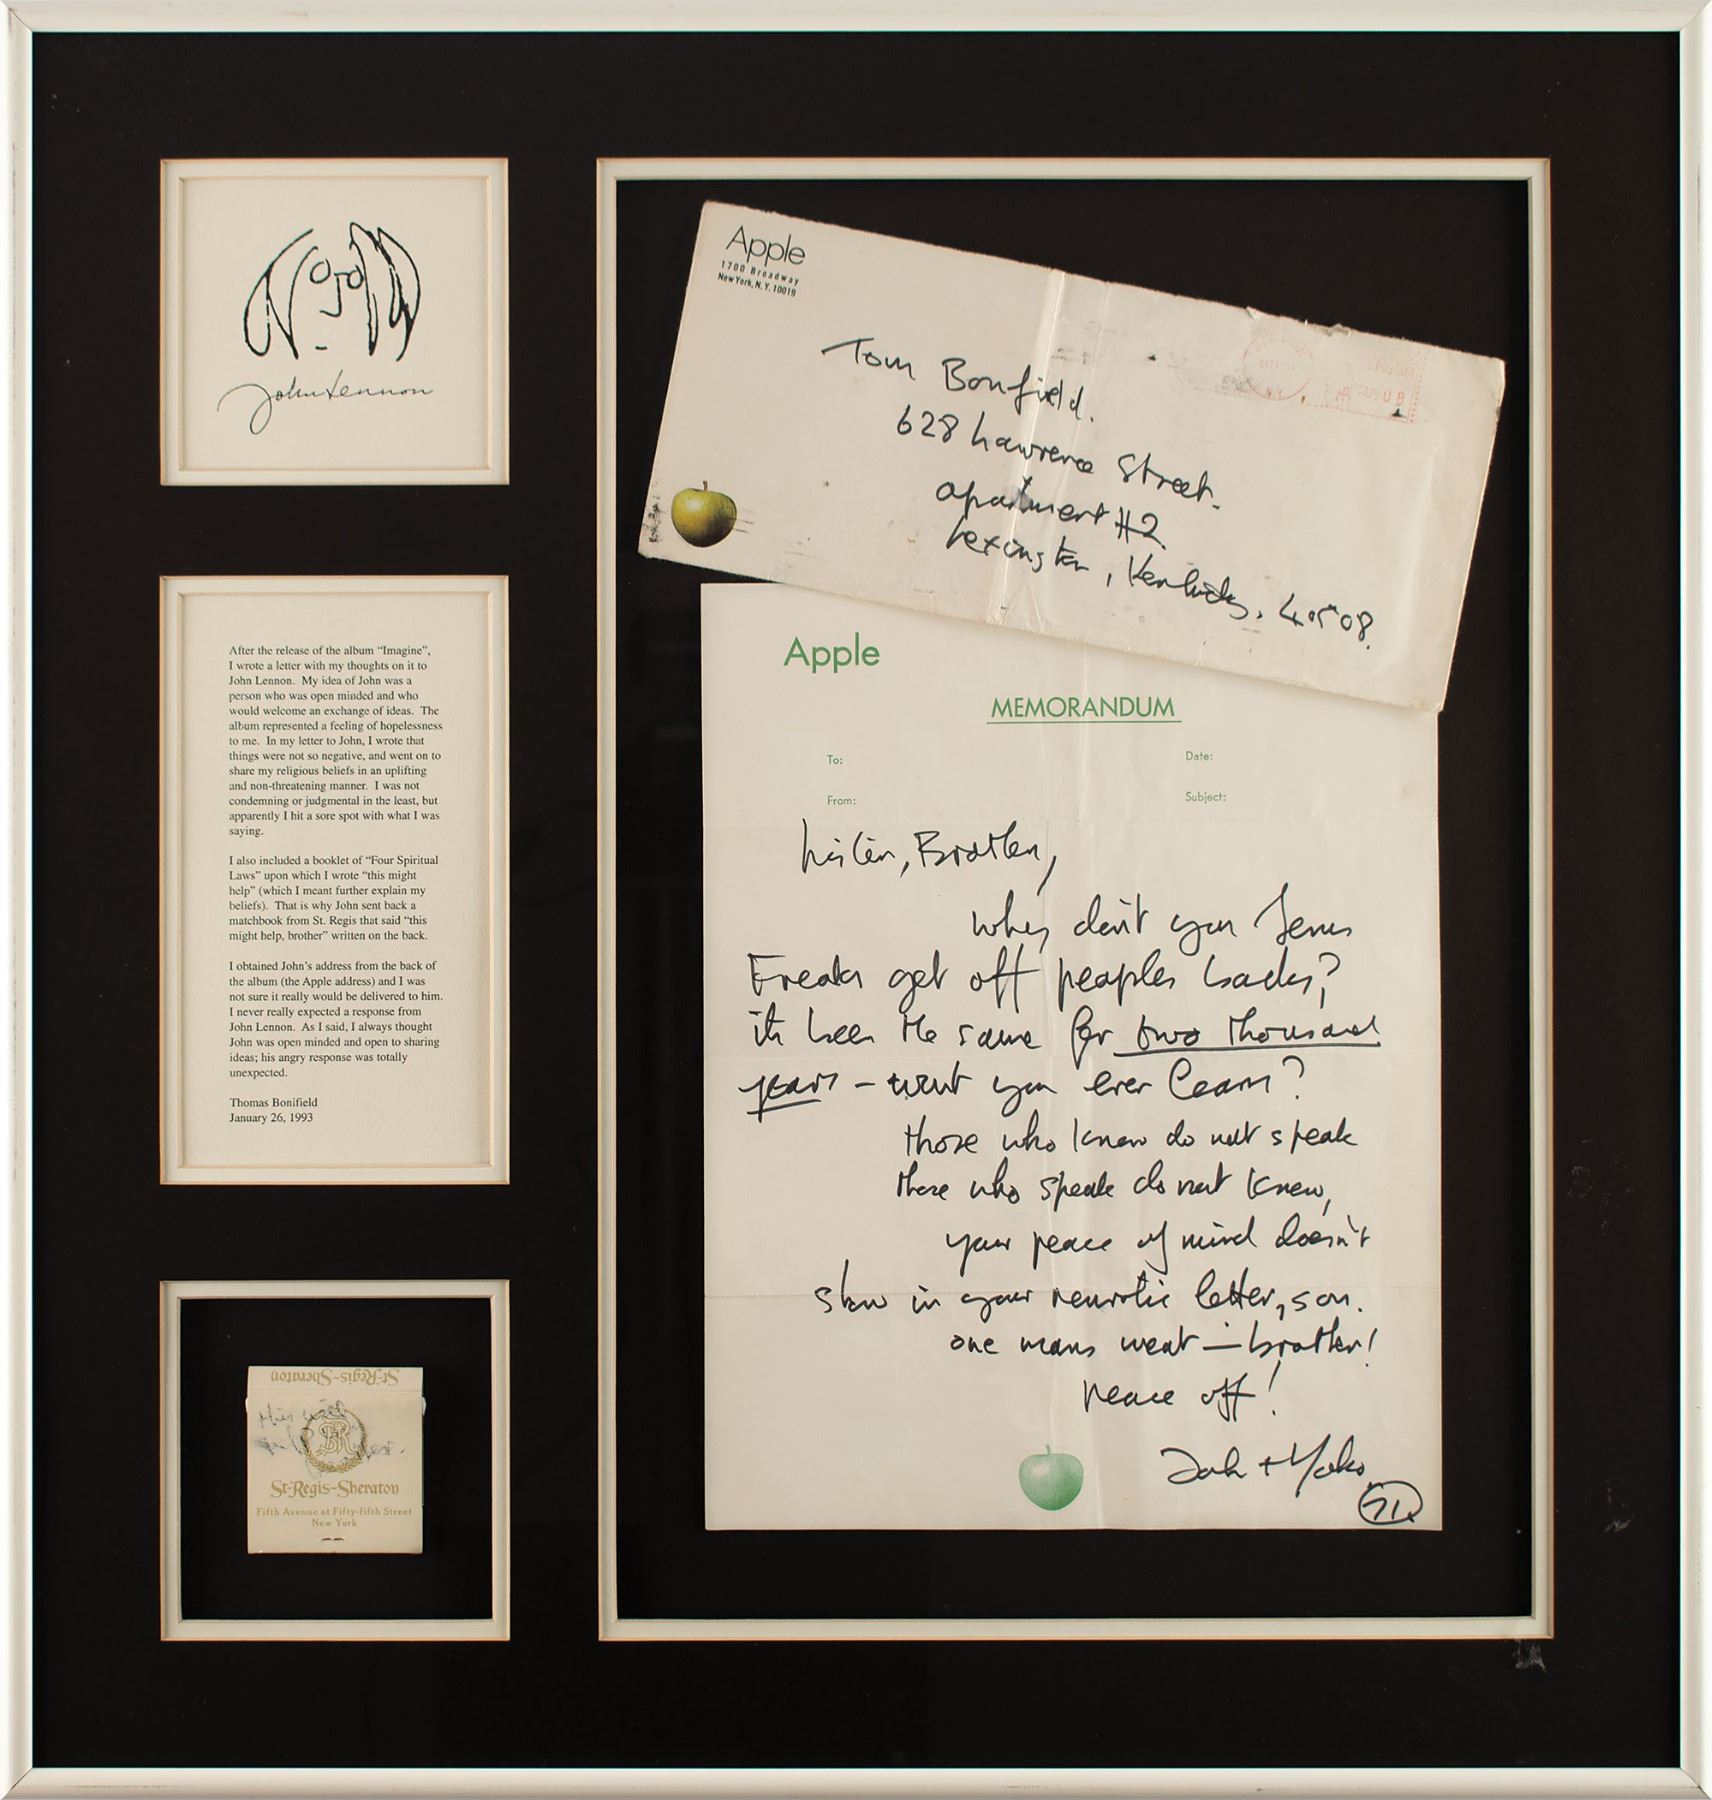 John Lennon
After the release of the album “Imagine”,
I wrote a letter with my thoughts on it to
John Lennon. My idea of John was a
person who was open minded and who
would welcome an exchange of ideas. The
album represented a feeling of hopelessness
to me. In my letter to John, I wrote that
things were not so negative, and went on to
share my religious beliefs in an uplifting
and non-threatening manner. I was not
condemning or judgmental in the least, but
apparently I hit a sore spot with what I was
saying.
I also included a booklet of “Four Spiritual
Laws” upon which I wrote “this might
help” (which I meant further explain my
beliefs). That is why John sent back a
matchbook from St. Regis that said “this
might help, brother” written on the back.
I obtained John’s address from the back of
the album (the Apple address) and I was
not sure it really would be delivered to him.
I never really expected a response from
John Lennon. As I said, I always thought
John was open minded and open to sharing
ideas; his angry response was totally
unexpected.
Thomas Bonifield
January 26, 1993
St-Regis-Sheraton
this
SR
St-Regis-Sheraton
Fifth Avenue at Fifty-fifth Street
New York
Apple
1700 Broadway
New York, N.Y. 10019
POSTAGE
N.Y.
Tom Bonfield.
628 Lawrence Street.
apartment #2
Lexington, Kentucky. 40508.
Apple
MEMORANDUM
To:
Date:
From:
Subject:
Listen, Brother,
why don't you Jesus
Freaks get off peoples backs?
its been the same for two thousand
years - wont you ever learn?
those who know do not speak
those who speak do not know,
your peace of mind doesn't
show in your neurotic letter, son.
one mans meat — brother!
peace off!
John + Yoko
71.